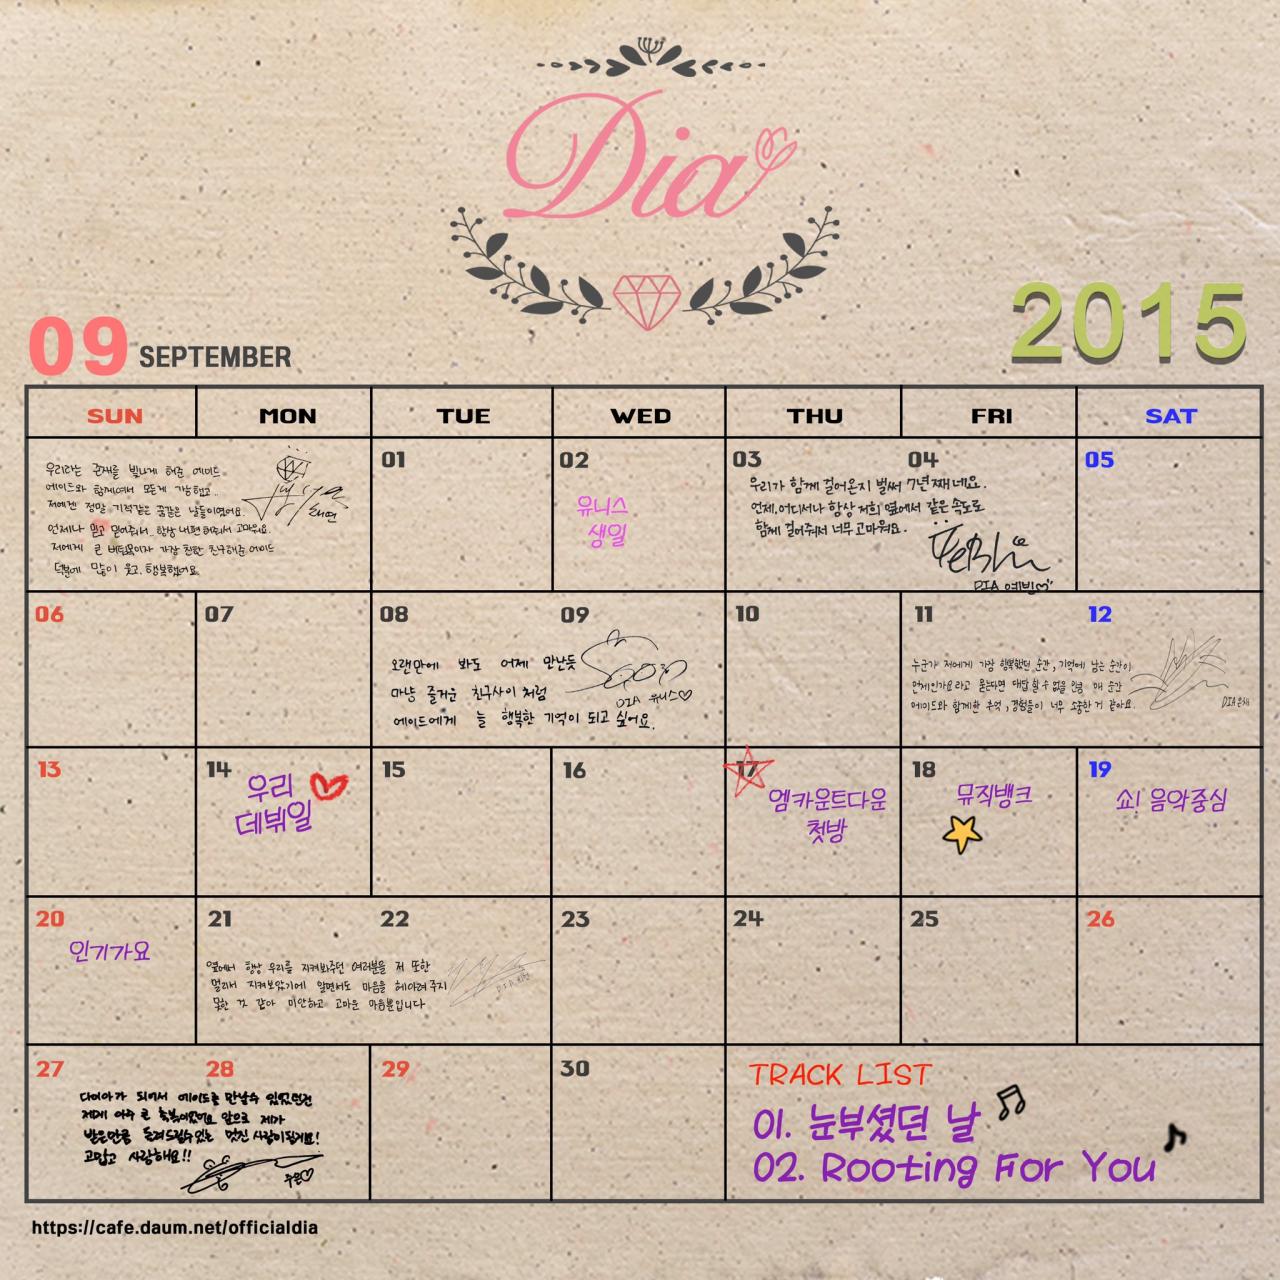 Dia
09 SEPTEMBER
2015
SUN MON TUE WED THU FRI SAT
우리라는 존재를 빛나게 해준 에이드
에이드와 함께여서 모든게 가능했고..
저에겐 정말 기적같은 꿈같은 날들이였어요.
언제나 믿고 믿어주시.. 항상 내편 해줘서 고마워요.
저에게 큰 버팀목이자 가장 친한 친구해준 에이드
덕분에 많이 웃고, 행복했어요.
태연
01
02
유니스
생일
03
04
우리가 함께 걸어온지 벌써 7년째네요.
언제, 어디서나 항상 저희 옆에서 같은 속도로
함께 걸어줘서 너무 고마워요.
YeBin
DIA 예빈♡
05
06
07
08
09
오랜만에 봐도 어제 만난듯
마냥 즐거운 친구사이 처럼
에이드에게 늘 행복한 기억이 되고 싶어요.
DIA 유니스♡
10
11
12
누군가 저에게 가장 행복했던 순간, 기억에 남는 순간이
언제인가요라고 묻는다면 대답 할 수 없을 만큼 매 순간
에이드와 함께한 추억, 경험들이 너무 소중한 거 같아요.
DIA 은채
13
14
우리
데뷔일
15
16
17
엠카운트다운
첫방
18
뮤직뱅크
19
쇼! 음악중심
20
인기가요
21
22
옆에서 항상 우리를 지켜봐주던 여러분을 저 또한
멀리서 지켜보았기에 알면서도 마음을 헤아려 주지
못한 것 같아 미안하고 고마운 마음뿐입니다
23
24
25
26
27
28
다이아가 되어서 에이드를 만날수 있었던건
제게 아주 큰 축복이었어요 앞으로 제가
받은만큼 돌려드릴수있는 멋진 사람이될게요!
고맙고 사랑해요!!
주은♡
29
30
TRACK LIST
01. 눈부셨던 날
02. Rooting For You
https://cafe.daum.net/officialdia